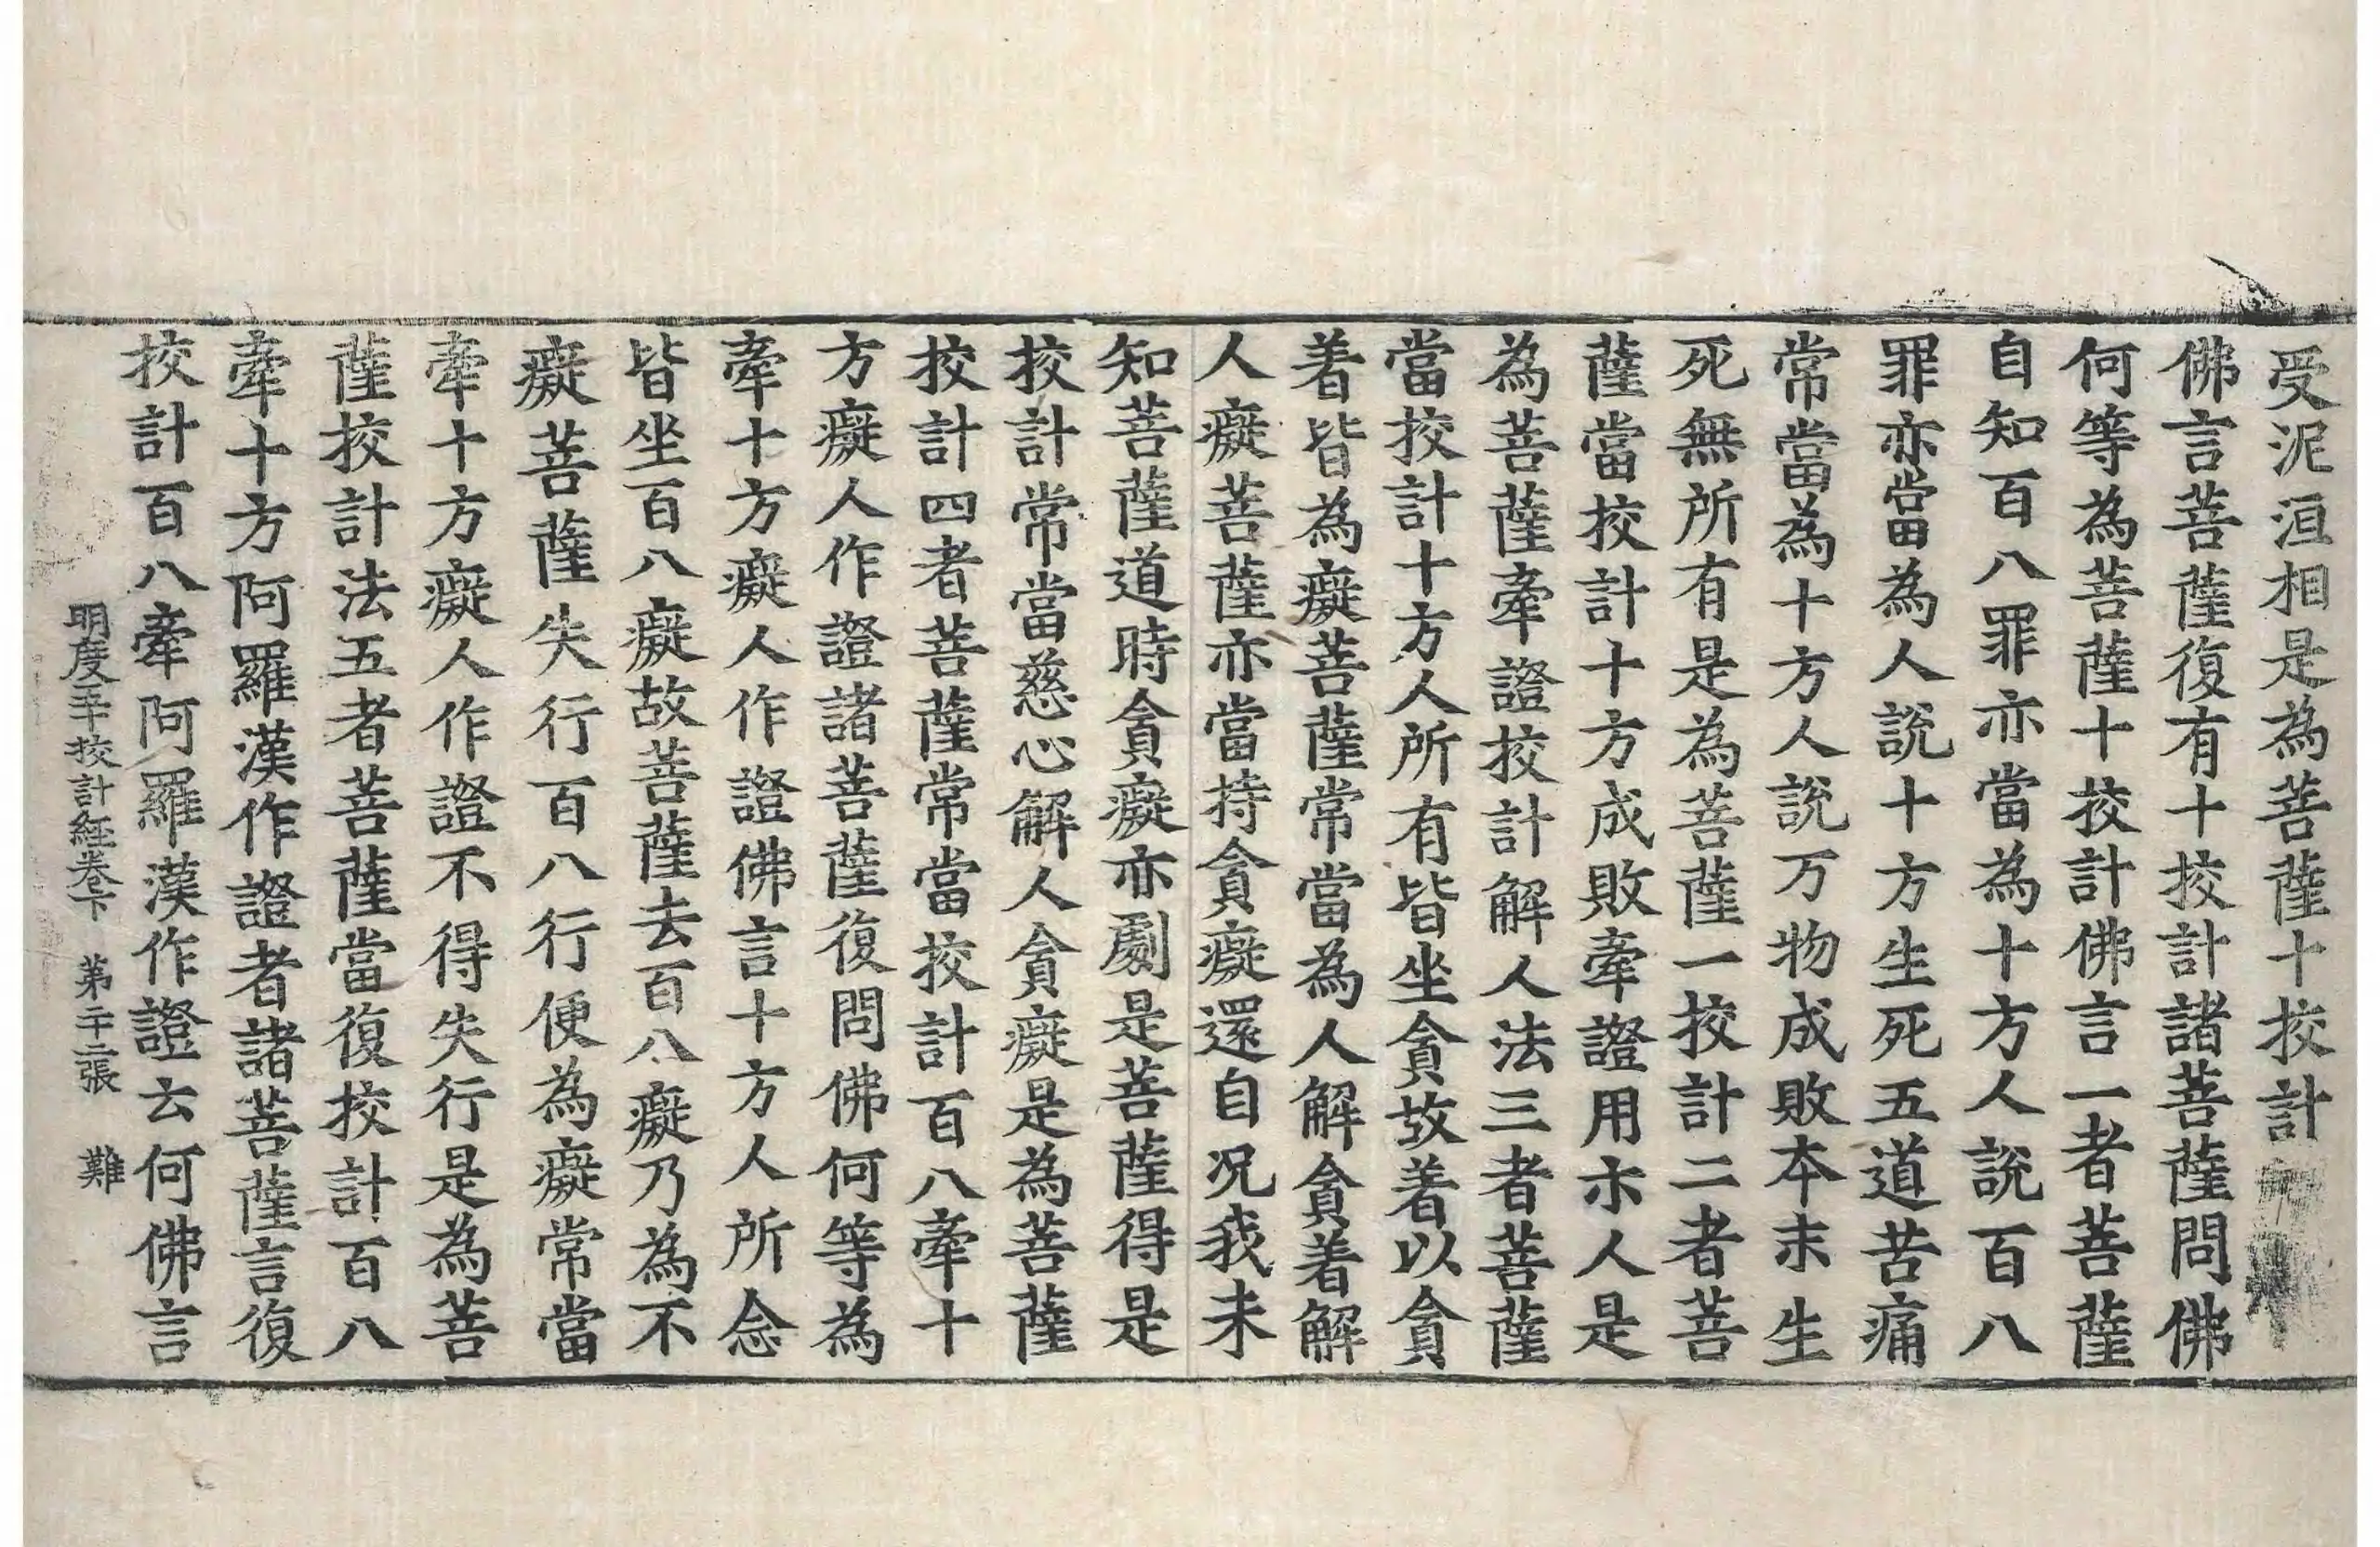 受泥洹相是為菩薩十挍計
佛言菩薩復有十挍計諸菩薩問佛
何等為菩薩十挍計佛言一者菩薩
自知百八罪亦當為十方人說百八
罪亦當為人說十方生死五道苦痛
常當為十方人說万物成敗本末生
死無所有是為菩薩一挍計二者菩
薩當挍計十方成敗牽證用示人是
為菩薩牽證挍計解人法三者菩薩
當挍計十方人所有皆坐貪故著以貪
著皆為癡菩薩常當為人解貪著解
人癡菩薩亦當持貪癡還自况我未
知菩薩道時貪癡亦劇是菩薩得是
挍計常當慈心解人貪癡是為菩薩
挍計四者菩薩常當挍計百八牽十
方癡人作證諸菩薩復問佛何等為
牽十方癡人作證佛言十方人所念
皆坐百八癡故菩薩去百八癡乃為不
癡菩薩失行百八行便為癡常當
牽十方癡人作證不得失行是為菩
薩挍計法五者菩薩當復挍計百八
牽十方阿羅漢作證者諸菩薩言復
挍計百八牽阿羅漢作證云何佛言
明度五十挍計經卷下 第二十二張 難